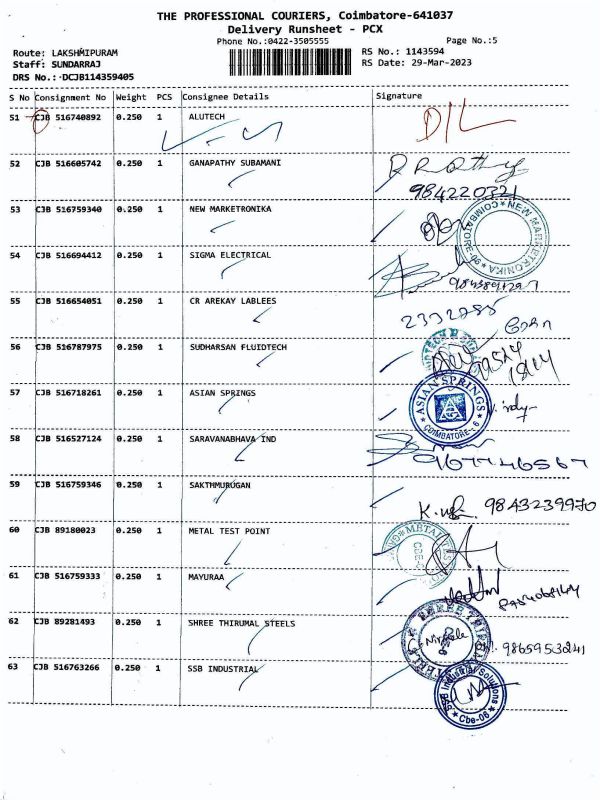 THE PROFESSIONAL COURIERS, Coimbatore-641037
Delivery Runsheet - PCX
Phone No.:0422-3505555 Page No.:5
Route: LAKSHMIPURAM RS No.: 1143594
Staff: SUNDARRAJ RS Date: 29-Mar-2023
DRS No.: DCJB114359405
S No Consignment No Weight PCS Consignee Details Signature
51 CJB 516740892 0.250 1 ALUTECH D/L
52 CJB 516605742 0.250 1 GANAPATHY SUBAMANI
984220321
53 CJB 516759340 0.250 1 NEW MARKETRONIKA
NEW MARKETRONIKA COIMBATORE
54 CJB 516694412 0.250 1 SIGMA ELECTRICAL
55 CJB 516654051 0.250 1 CR AREKAY LABLEES
2332785
56 CJB 516787975 0.250 1 SUDHARSAN FLUIDTECH
57 CJB 516718261 0.250 1 ASIAN SPRINGS
ASIAN SPRINGS COIMBATORE - 6
58 CJB 516527124 0.250 1 SARAVANABHAVA IND
9677746567
59 CJB 516759346 0.250 1 SAKTHMURUGAN
9843239970
60 CJB 89180023 0.250 1 METAL TEST POINT
61 CJB 516759333 0.250 1 MAYURAA
62 CJB 89281493 0.250 1 SHREE THIRUMAL STEELS
9865953241
63 CJB 516763266 0.250 1 SSB INDUSTRIAL
Industrial Solutions Cbe-06